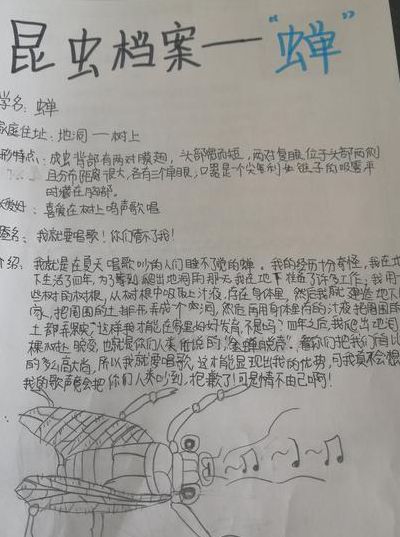 昆虫档案——“蝉”
学名：蝉
家庭住址：地洞——树上
形特点：成虫背部有两对膜翅，头部宽而短，两对复眼位于头部两侧
且分布距离很大，各有三个单眼，口器是个尖利如锥子的吸管平
时藏在胸部。
爱好：喜爱在树上鸣声歌唱
名：我就要唱歌！你们管不了我！
介绍：我就是在夏天唱歌吵的人们睡不觉的蝉。我的经历十分奇怪，我在地
下生活了四年，为了等到爬出地洞的那天我在地下准备了许多工作：我用一
些树的树根，从树根中吸取上汁液，存在身体里，然后我就建造地下
，把周围的土排开形成个空洞，然后再用身体里存的汁液把周围的
土都弄，这样我才能在家里好好发育，不是吗？四年之后，我爬出地洞
棵树上脱变，也就是你们人类所说的，“金蝉脱壳”。看你们把我们看
的多么高大尚，所以我就爱唱歌，这才能显现出我的优势，可我真不会想
我的歌声竟会把你们人类吵到，抱歉了！可是情不由己啊！